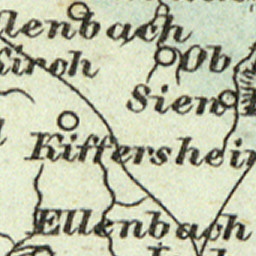 llenbach
Kirch
Ob
Sien
Kiffershei
Ellenbach